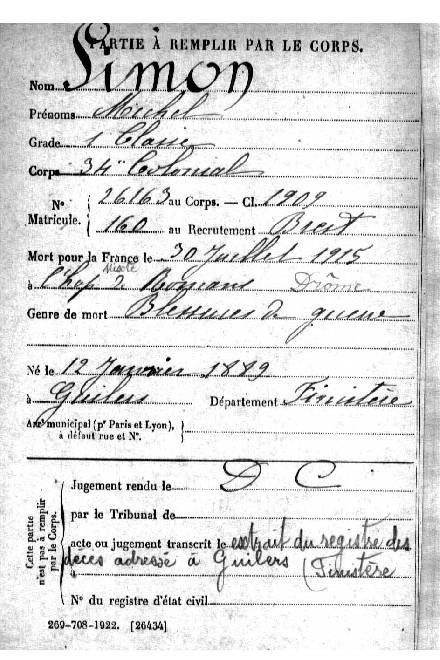 PARTIE À REMPLIR PAR LE CORPS.
Nom Simon
Prénoms Michel
Grade 1 Classe
Corps 34e Colonial
N° Matricule. { 26163 au Corps. — Cl. 1909
160 au Recrutement Brest
Mort pour la France le 30 Juillet 1915
mixte
à l'hop de Romans Drôme
Genre de mort Blessures de guerre
Né le 12 Janvier 1889
à Guilers Département Finistère
Arr municipal (pr Paris et Lyon), à défaut rue et N°. }
Cette partie n'est pas à remplir par le Corps.
Jugement rendu le D C
par le Tribunal de
acte ou jugement transcrit le extrait du registre des
décès adressé à Guilers (Finistère
N° du registre d'état civil
269-708-1922. [26434]